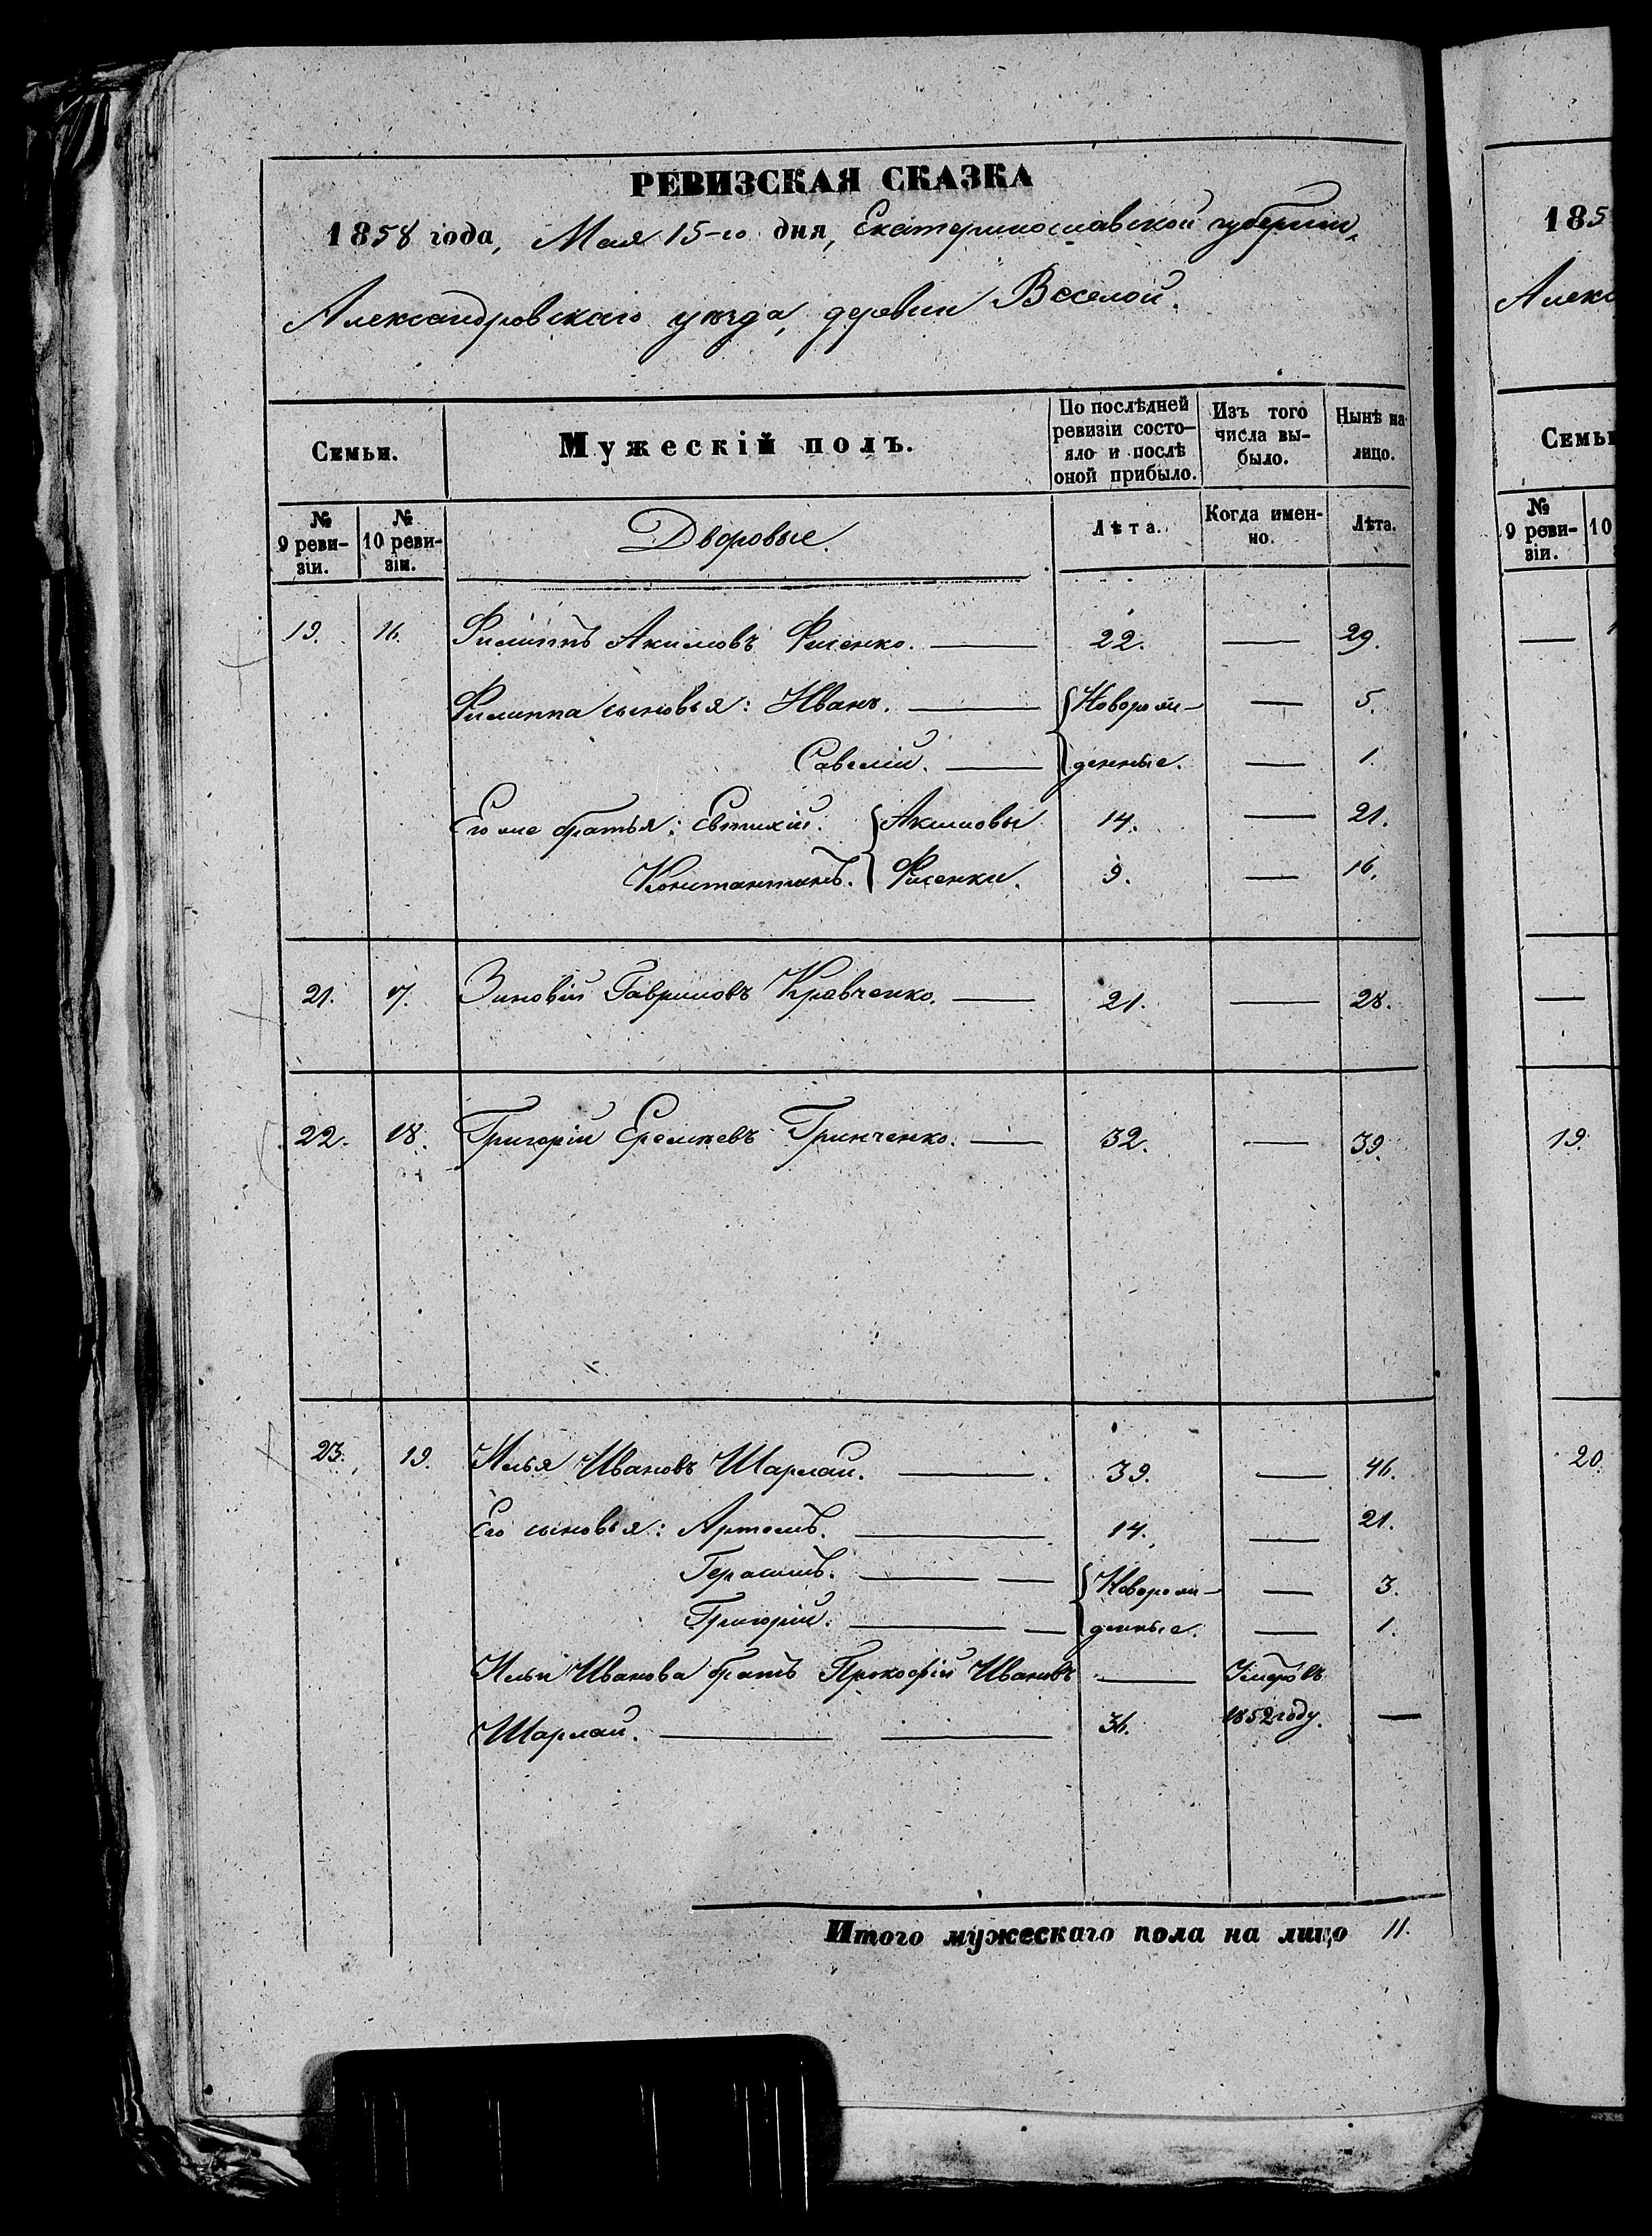 РЕВИЗСКАЯ СКАЗКА
1858 года, Мая 15-го дня, Екатеринославской губернии,
Александровскаго уѣзда, деревни Веселой.
Семьи.
Мужескій полъ.
По послѣдней ревизіи состо-
яло и послѣ
оной прибыло.
Изъ того
числа вы-
было.
Нынѣ на
лицо.
№
9 реви-
зіи.
№
10 реви-
зіи.
Дворовые.
Лѣта.
Когда имен-
но.
Лѣта.
19. 16. Филиппъ Акимовъ Фисенко. — 22. — 29.
Филиппа сыновья: Иванъ. — Новорож- — 5.
Савелій. — денные. — 1.
Его же братья: Евтихій. Акимовы 14. — 21.
Константинъ. Фисенки. 9. — 16.
21. 17. Зиновій Гавриловъ Кравченко. — 21. — 28.
22. 18. Григорій Еремѣевъ Гринченко. — 32. — 39.
23. 19. Илья Ивановъ Шарлай. — 39. — 46.
Его сыновья: Артемъ. — 14. — 21.
Герасимъ. — — Новорож- — 3.
Григорій. — — денные. — 1.
Ильи Иванова братъ Прокофій Ивановъ — Умеръ въ
Шарлай. — — 36. 1852 году. —
Итого мужескаго пола на лицо 11.
185
Алекс
Семьи
№
9 реви-
зіи.
10
19.
20.